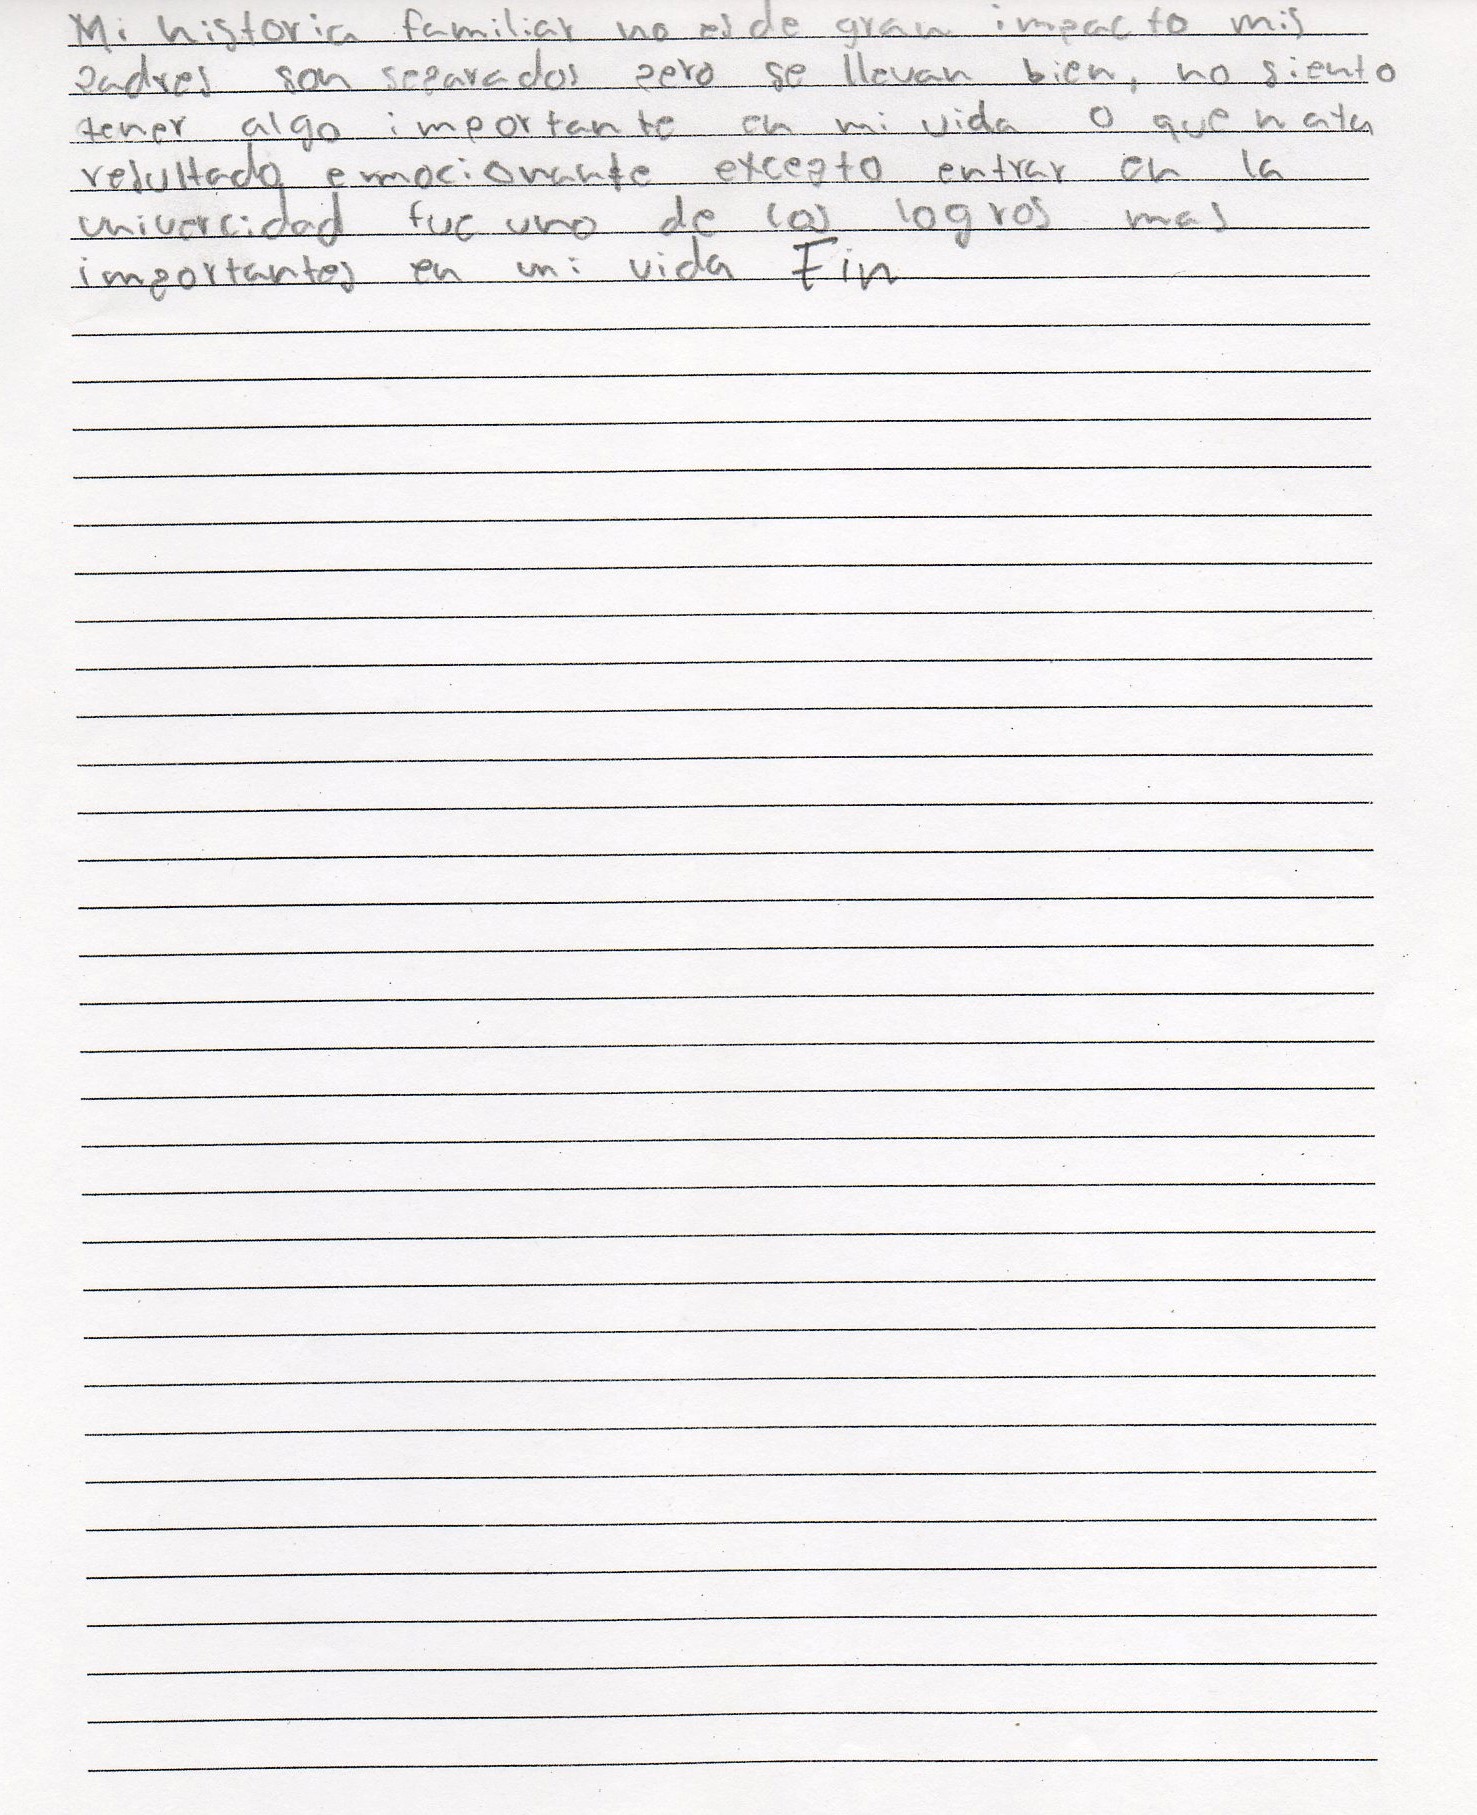 Mi historia familiar no es de gran impacto mis
padres son separados pero se llevan bien, no siento
tener algo importante en mi vida o que haya
resultado emocionante excepto entrar en la
univercidad fue uno de los logros mas
importantes en mi vida Fin